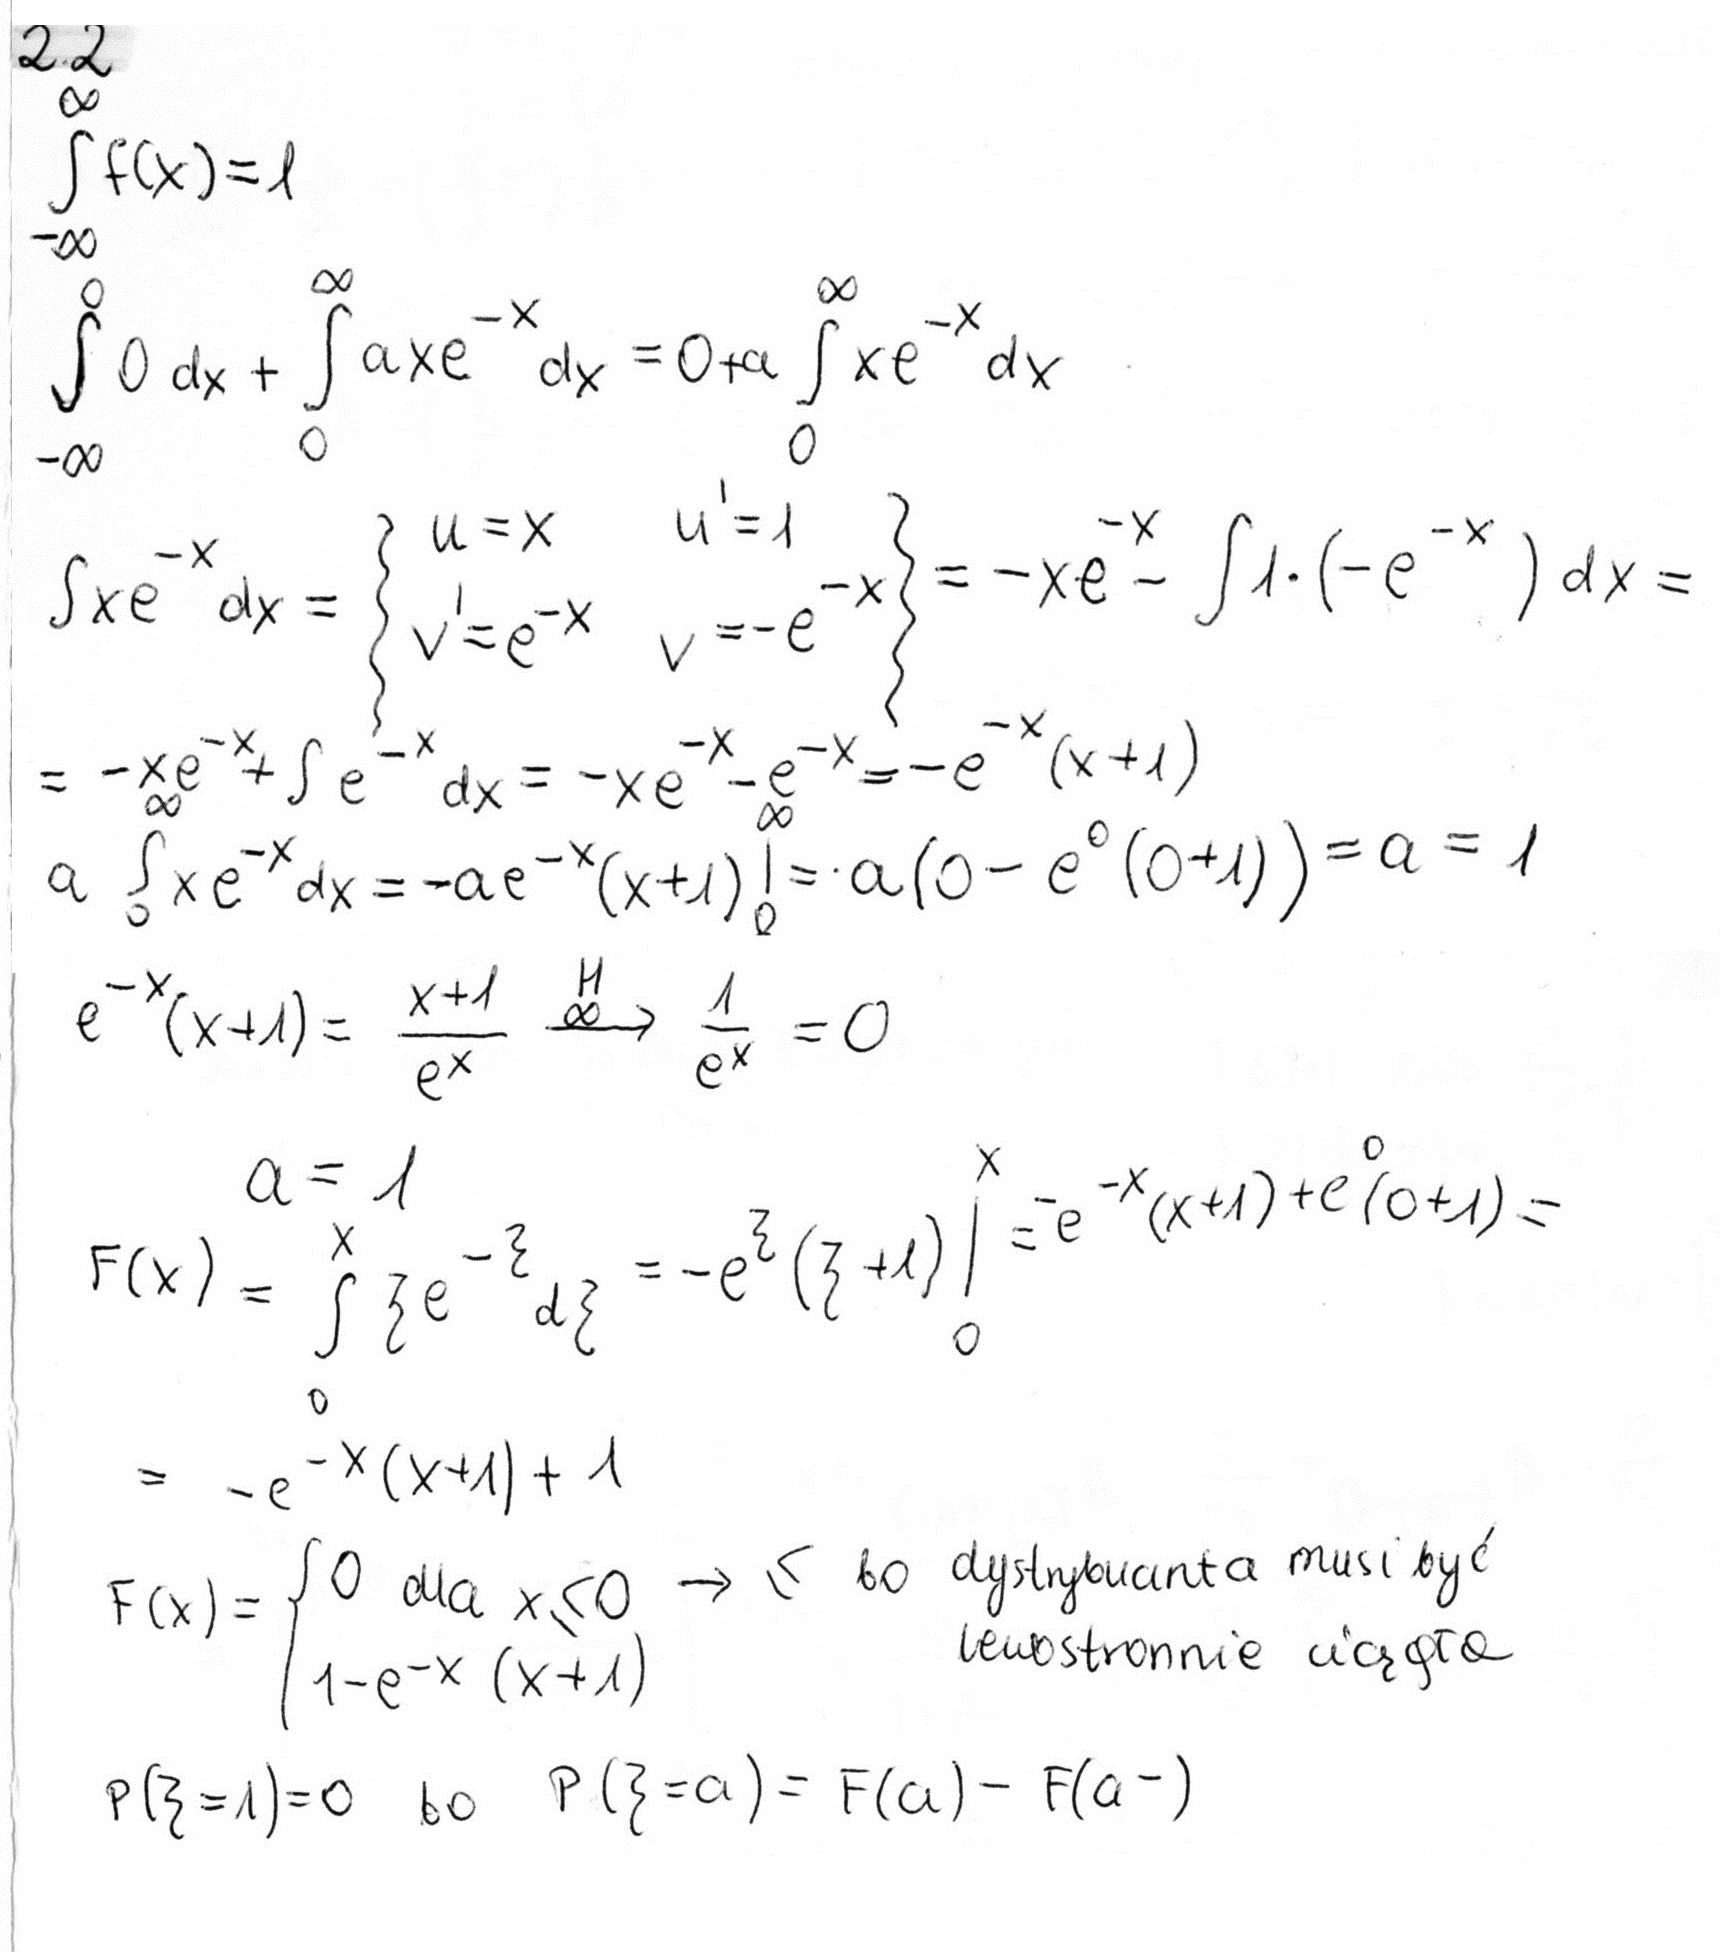 2.2
∞∫-∞ f(x)=1
0∫-∞ 0 dx + ∞∫0 axe^-x dx = 0+a ∞∫0 xe^-x dx
∫xe^-x dx = { u=x u'=1 v'=e^-x v=-e^-x } = -xe^-x - ∫1·(-e^-x) dx =
= -xe^-x + ∫e^-x dx = -xe^-x - e^-x = -e^-x (x+1)
a ∞∫0 xe^-x dx = -ae^-x (x+1) |∞0 = -a(0-e^0 (0+1)) = a = 1
e^-x (x+1) = x+1/e^x H ∞→ 1/e^x = 0
a = 1
F(x) = x∫0 ξe^-ξ dξ = -e^ξ (ξ+1) |x0 = -e^-x (x+1)+e^0 (0+1) =
= -e^-x (x+1) + 1
F(x) = { 0 dla x≤0 → ≤ bo dystrybuanta musi być
1-e^-x (x+1) lewostronnie ciągła
P(ξ=1)=0 bo P(ξ=a) = F(a) - F(a-)